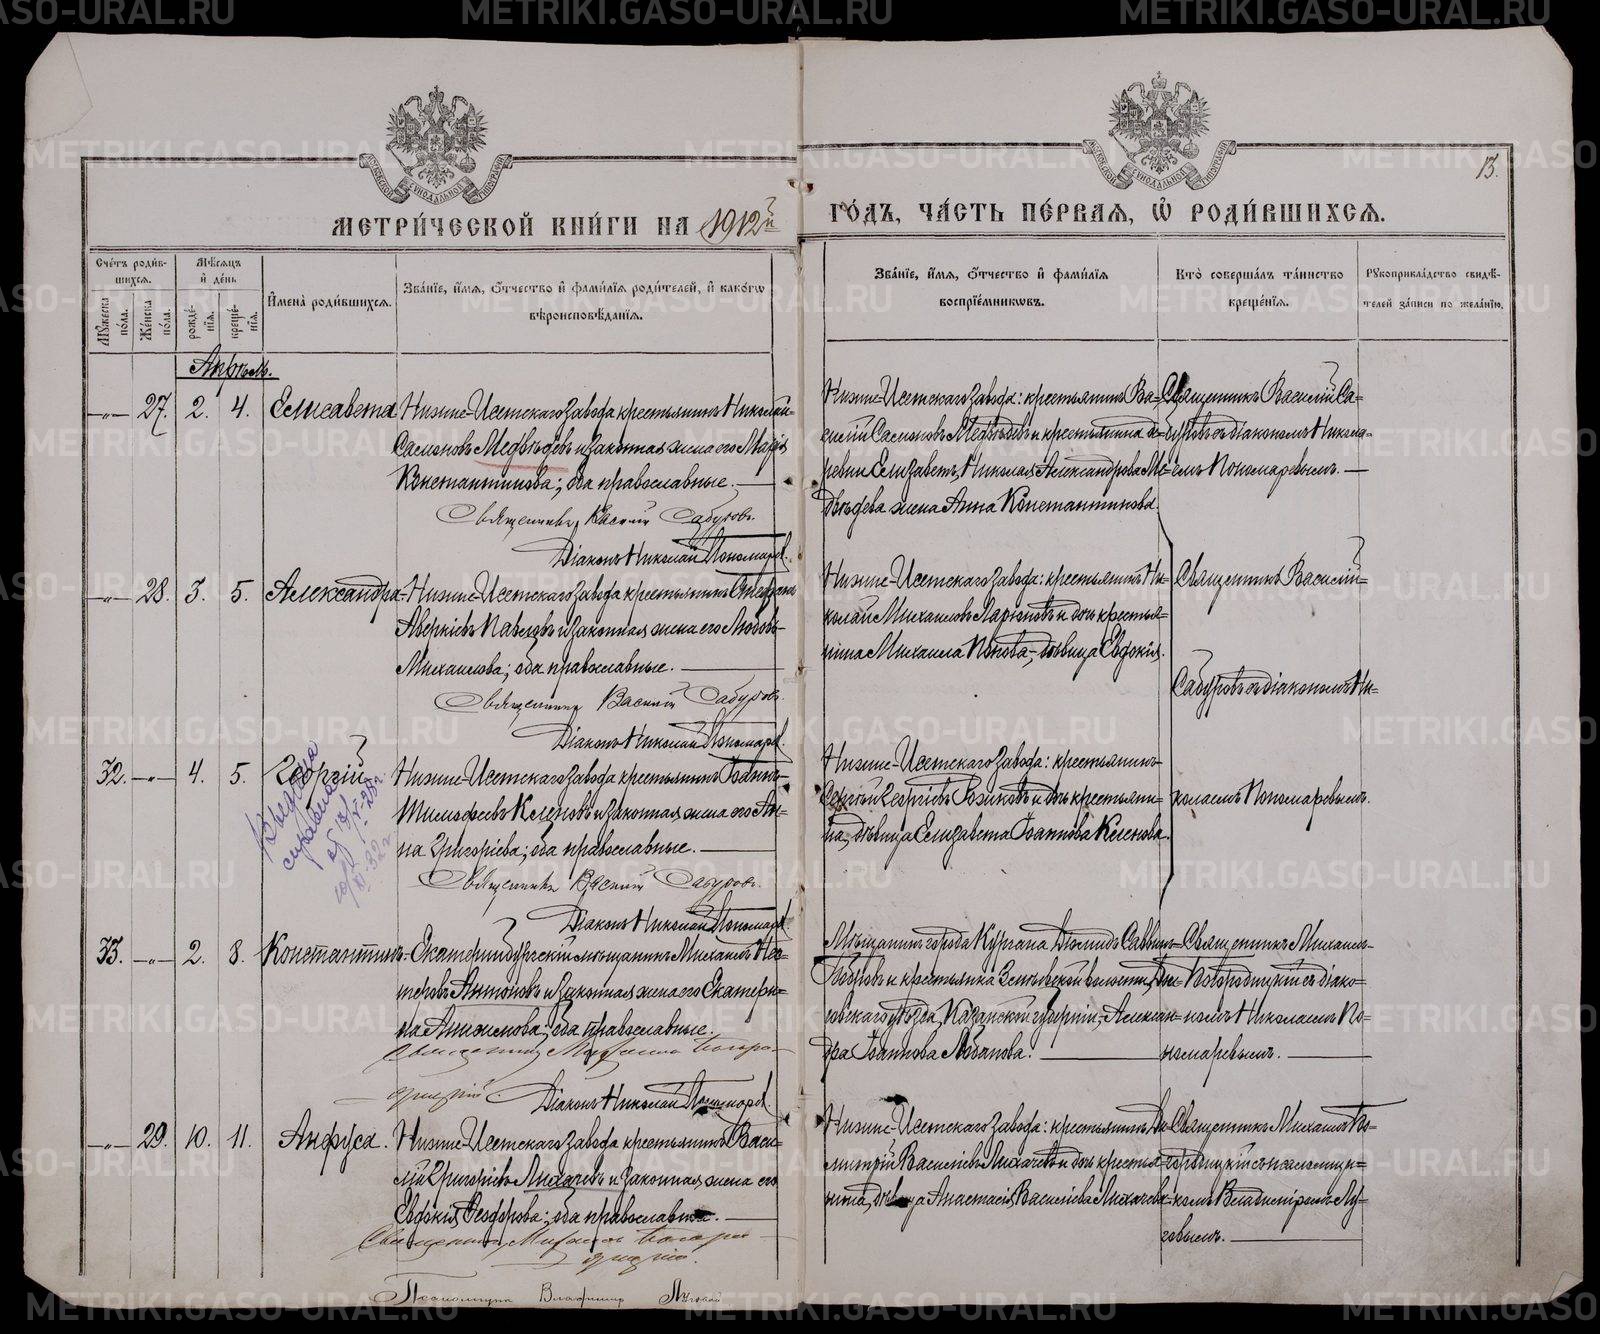 МЕТРИ́ЧЕСКОЙ КНИ́ГИ НА 1912й ГО́ДЪ, ЧА́СТЬ ПЕ́РВАЯ, Ѡ РОДИ́ВШИХСЯ.
13.
Счетъ роди́вшихся.
Мужеска по́ла.
Же́нска по́ла.
Мѣсяцъ и́ день
рожде́нїя.
креще́нїя.
И҆мена̀ роди́вшихся.
Зва́нїе, и҆мя, ѻ҆́тчество и҆ фами́лїя роди́телей, и҆ како́гѡ
вѣроисповѣ́данїя.
Зва́нїе, и҆мя, ѻ҆́тчество и҆ фами́лїя
воспрїе́мниковъ.
Кто̀ соверша́лъ та́инство
креще́нїя.
Рꙋкоприкла́дство свидѣ́-
телей за́писи по жела́нїю.
Апрѣль.
-„- 27. 2. 4. Елисавета
Нижне-Исетскаго завода крестьянинъ Николай
Самсоновъ Медвѣдевъ и законная жена его Марія
Константинова; оба православные.
Священникъ Василій Сабуровъ.
Діаконъ Николай Пономарев.
Нижне-Исетскаго завода: крестьянинъ Ва-
силій Самсоновъ Медвѣдевъ и крестьянина де-
ревни Елизаветъ, Николая Александрова Ме-
двѣдева жена Анна Константинова.
Священникъ Василій Са-
буровъ съ діакономъ Никола-
емъ Пономаревымъ.
-„- 28. 3. 5. Александра
Нижне-Исетскаго завода крестьянинъ Стефанъ
Аверкіевъ Павловъ и законная жена его Любовь
Михаилова; оба православные.
Священникъ Василій Сабуровъ.
Діаконъ Николай Пономарев.
Нижне-Исетскаго завода: крестьянинъ Ни-
колай Михаиловъ Ларіоновъ и дочь крестья-
нина Михаила Попова, дѣвица Евдокія.
Священникъ Василій
Сабуровъ съ діакономъ Ни-
колаемъ Пономаревымъ.
32. -„- 4. 5. Георгій
Выдана
справка
Нижне-Исетскаго завода крестьянинъ Іоаннъ
Тимофеевъ Келеновъ и законная жена его Ан-
на Григоріева; оба православные.
Священникъ Василій Сабуровъ.
Діаконъ Николай Пономарев.
Нижне-Исетскаго завода: крестьянинъ
Сергій Георгіевъ и дочь крестьяни-
на, дѣвица Елизавета Іоаннова Келенова.
33. -„- 2. 8. Константинъ
Екатеринбургскій мѣщанинъ Михаилъ Нес-
теровъ Антоновъ и законная жена его Екатери-
на Анисимова; оба православные.
Священникъ Михаилъ Богоро-
дицкій. Діаконъ Николай Пономарев.
Мѣщанинъ города Кургана Діомидъ Саввинъ
Бобровъ и крестьянка волости,
уѣзда, Казанской губерніи, Алексан-
дра Іоаннова Лобанова.
Священникъ Михаилъ
Богородицкій съ діако-
номъ Николаемъ По-
номаревымъ.
-„- 29. 10. 11. Анфуса.
Нижне-Исетскаго завода крестьянинъ Васи-
лій Григоріевъ Лихачевъ и законная жена его
Евдокія Ѳеодорова; оба православные.
Священникъ Михаилъ Богоро-
дицкій.
Псаломщикъ Владимір Луговой
Нижне-Исетскаго завода: крестьянинъ Ди-
митрій Василіевъ Лихачевъ и дочь крестья-
нина, дѣвица Анастасія Василіева Лихачева
Священникъ Михаилъ Бо-
городицкій съ псаломщи-
комъ Владиміромъ Лу-
говымъ.
METRIKI.GASO-URAL.RU